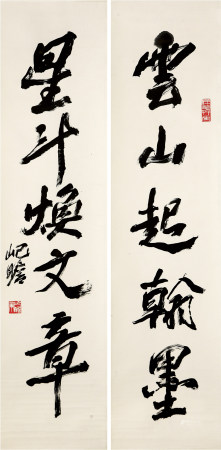 雲山起翰墨
星斗煥文章
屺瞻